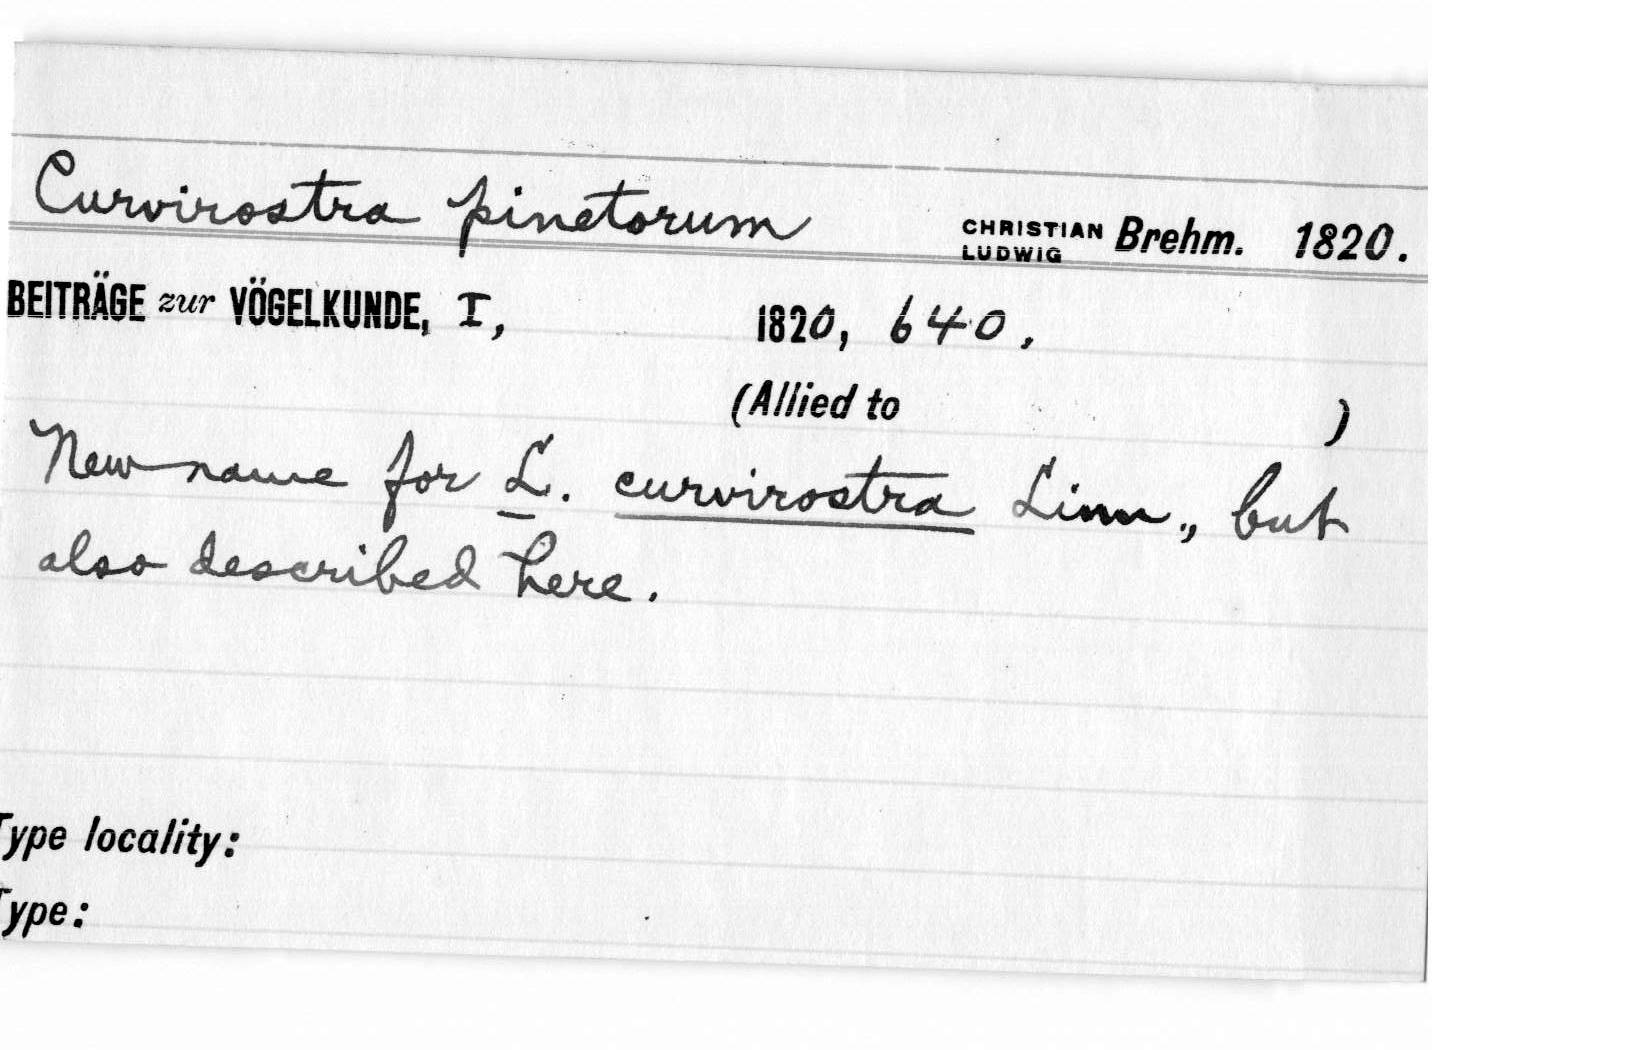 Curvirostra pinetorum CHRISTIAN LUDWIG Brehm. 1820.
BEITRÄGE zur VÖGELKUNDE, I, 1820, 640.
(Allied to )
New name for L. curvirostra Linn., but
also described here.
Type locality:
Type: